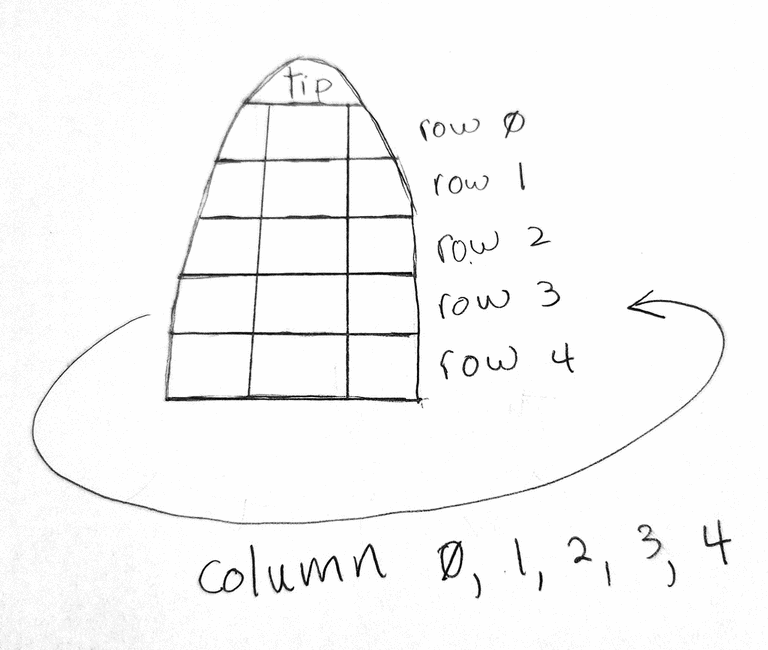 tip
row 0
row 1
row 2
row 3
row 4
column 0, 1, 2, 3, 4